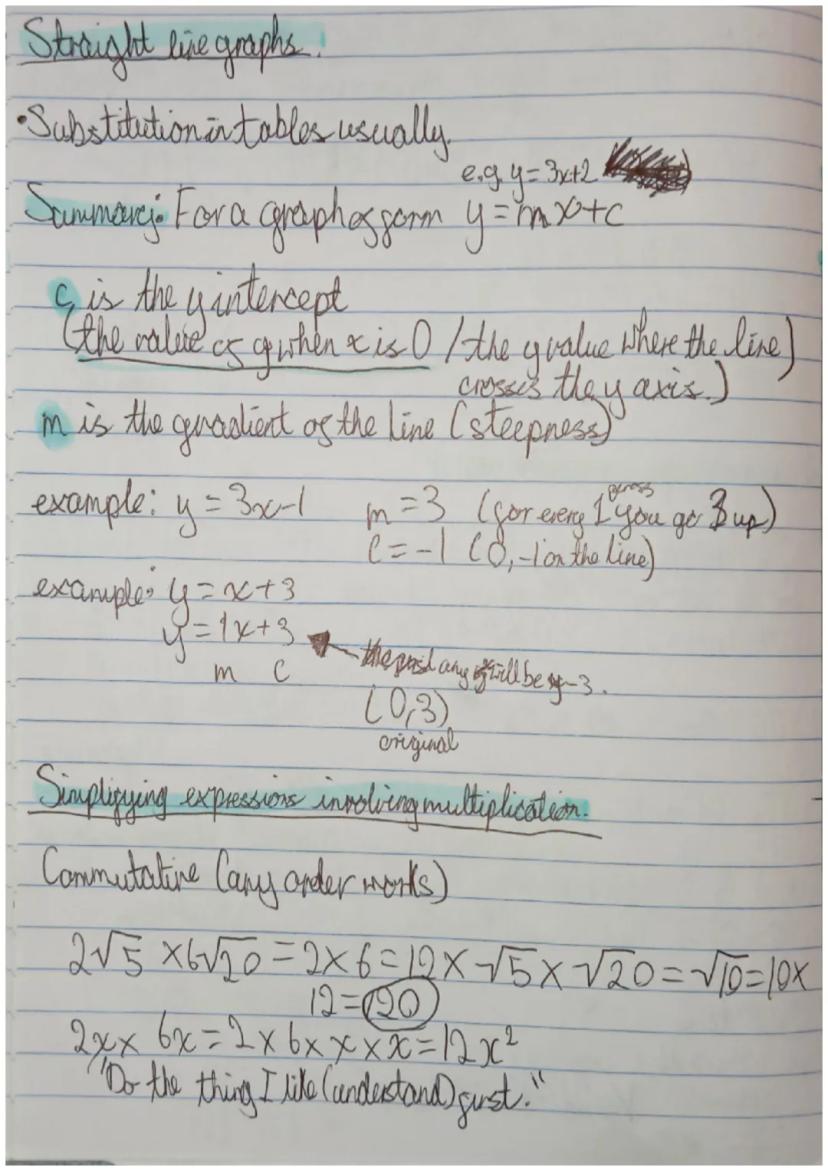 Straight line graphs.
•Substitution in tables usually.
e.g. y=3x+2
Summary: For a graph of form y=mx+c
c is the y intercept
(the value of y when x is 0 / the y value where the line)
crosses the y axis.)
m is the gradient of the line (steepness)
across
example: y=3x-1 m=3 (for every 1 you go 3 up)
c=-1 (0,-1 on the line)
example: y=x+3
y=1x+3
the any will be -3.
m c
(0,3)
original
Simplifying expressions involving multiplication.
Commutative (any order works)
2√5 ×6√20 =2×6=12×√5×√20=√10=10×
12=120
2x× 6x=2×6×x×x=12x²
"Do the thing I like (understand) first."